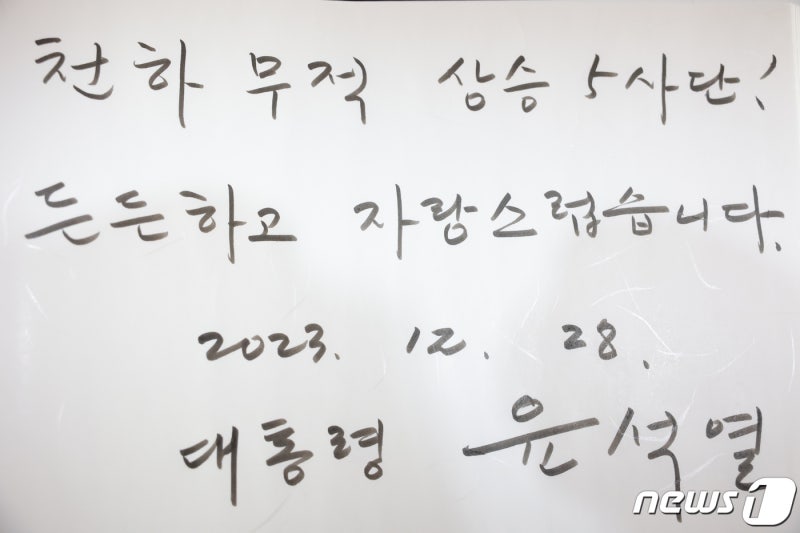 천하 무적 상승 5사단!
든든하고 자랑스럽습니다.
2023. 12. 28.
대통령 윤석열
news1